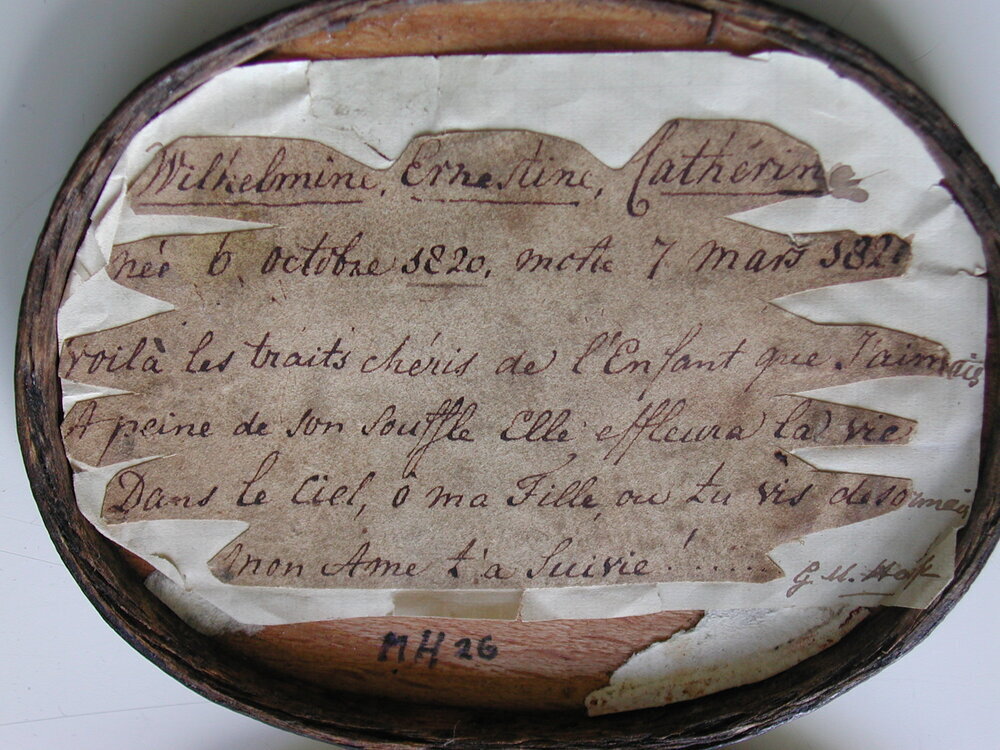 Wilhelmine, Ernestine, Cathérine
née 6 octobre 1820, morte 7 mars
voilà les traits chéris de l'Enfant que J'aimais
A peine de son souffle Elle effleura la vie
Dans le Ciel, ô ma Fille, ou tu vis desormais
mon Ame t'a Suivie ! ......
G. M.
MH 26